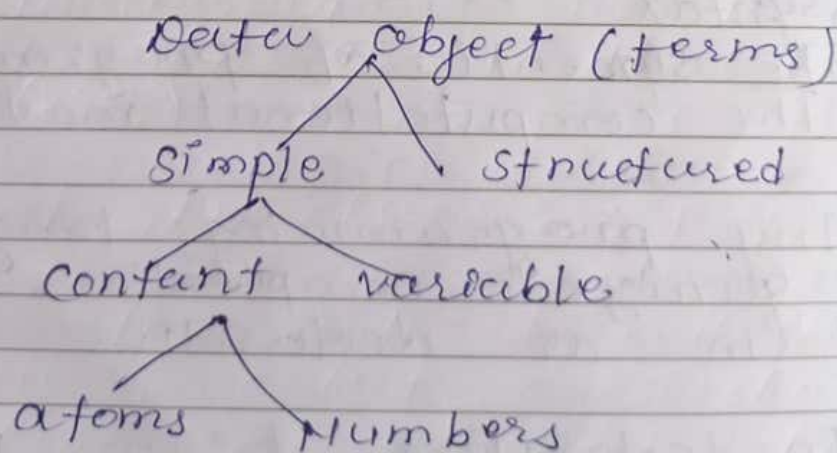 Data object (terms)
Simple structured
contant variable
atoms Numbers